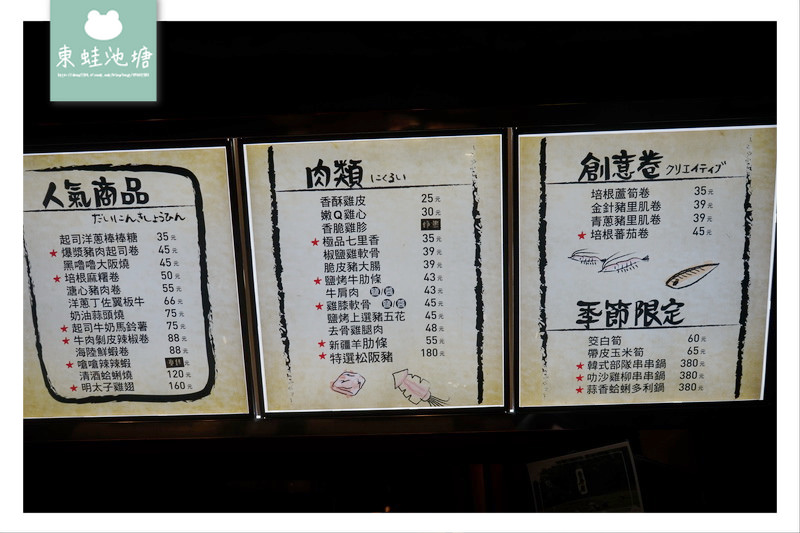 東蛙池塘
人氣商品
だいにんきしょうひん
起司洋蔥棒棒糖 35元
★爆漿豬肉起司卷 45元
黑嚕嚕大阪燒 45元
★培根麻糬卷 50元
溏心豬肉卷 55元
洋蔥丁佐翼板牛 66元
奶油蒜頭燒 75元
★起司牛奶馬鈴薯 75元
★牛肉剝皮辣椒卷 88元
海陸鮮蝦卷 88元
★嗆嗆辣辣蝦
清酒蛤蜊燒 120元
★明太子雞翅 160元
肉類 にくるい
香酥雞皮 25元
嫩Q雞心 30元
香脆雞胗
★極品七里香 35元
椒鹽雞軟骨 39元
脆皮豬大腸 39元
★鹽烤牛肋條 43元
牛肩肉 鹽/醬 43元
★雞膝軟骨 鹽/醬 45元
鹽烤上選豬五花 45元
去骨雞腿肉 48元
★新疆羊肋條 55元
★特選松阪豬 180元
創意卷 クリエイティブ
培根蘆筍卷 35元
金針豬里肌卷 39元
青蔥豬里肌卷 39元
★培根蕃茄卷 45元
季節限定
筊白筍 60元
帶皮玉米筍 65元
★韓式部隊串串鍋 380元
★叻沙雞柳串串鍋 380元
★蒜香蛤蜊多利鍋 380元